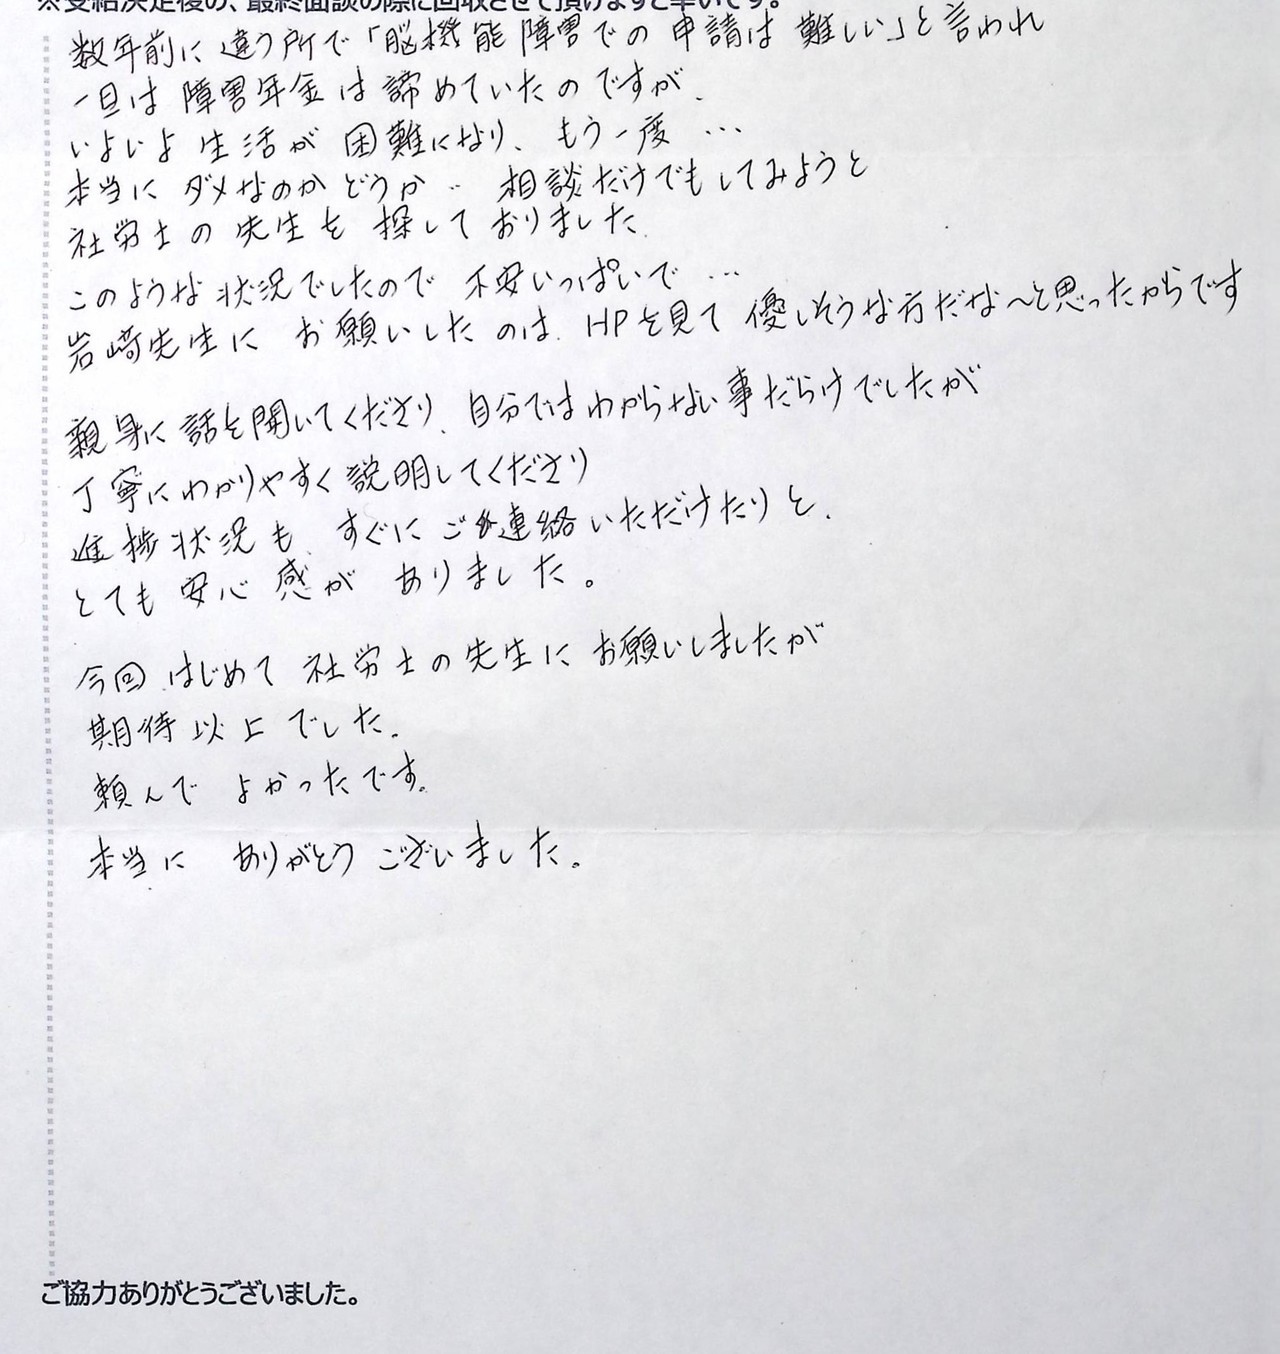 ※受給決定後の、最終面談の際に回収させて頂けますと幸いです。
数年前に違う所で「脳機能障害での申請は難しい」と言われ
一旦は障害年金は諦めていたのですが、
いよいよ生活が困難になり、もう一度…
本当にダメなのかどうか… 相談だけでもしてみようと
社労士の先生を探しておりました。
このような状況でしたので不安いっぱいで…
岩崎先生にお願いしたのは、HPを見て優しそうな方だな〜と思ったからです
親身に話を聞いてくださり、自分ではわからない事だらけでしたが
丁寧にわかりやすく説明してくださり
進捗状況も、すぐにご連絡いただけたりと、
とても安心感がありました。
今回、はじめて社労士の先生にお願いしましたが
期待以上でした。
頼んでよかったです。
本当にありがとうございました。
ご協力ありがとうございました。